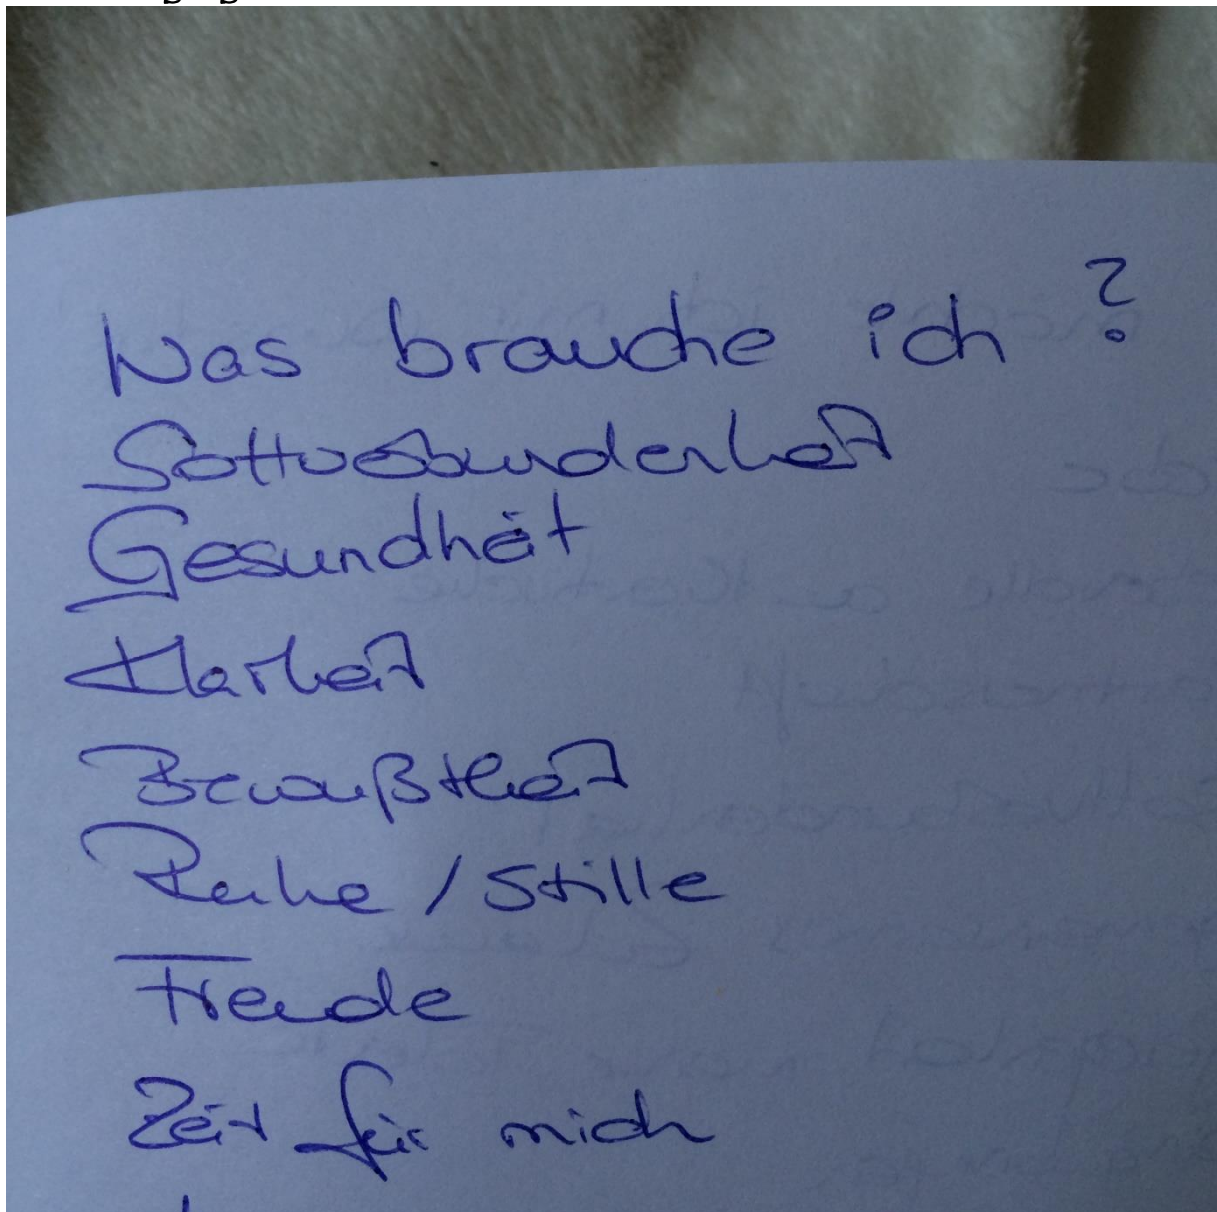 Was brauche ich ?
Gottverbundenheit
Gesundheit
Klarheit
Bewußtheit
Ruhe / Stille
Freude
Zeit für mich